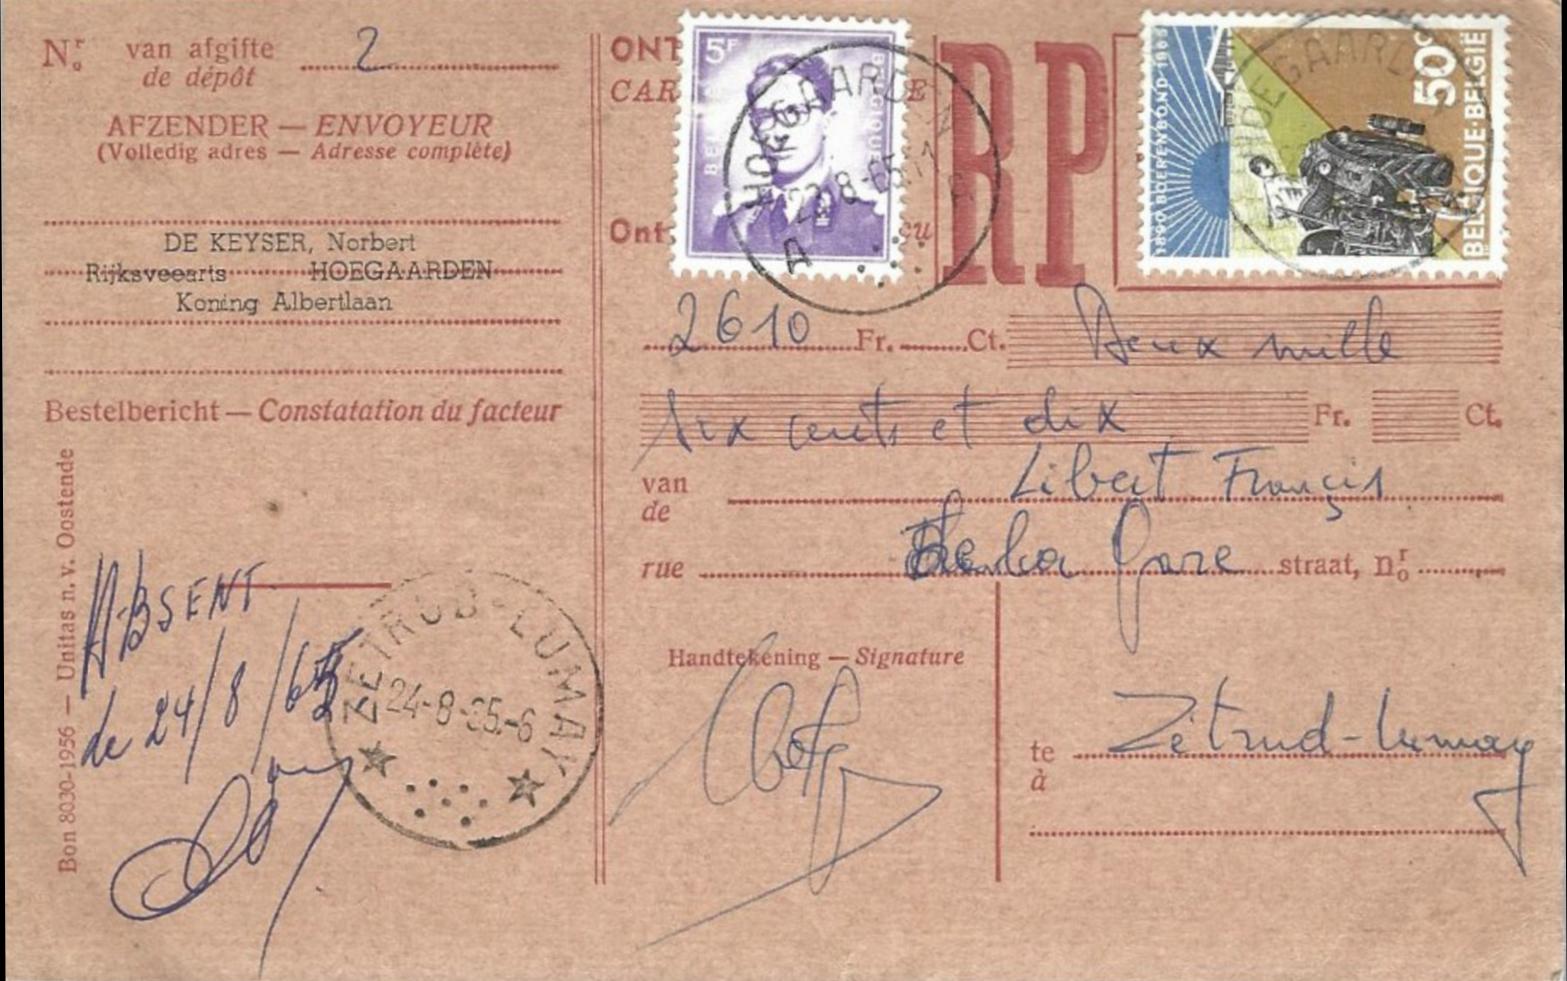 Nr. van afgifte 2
de dépôt
AFZENDER — ENVOYEUR
(Volledig adres — Adresse complète)
DE KEYSER, Norbert
Rijksveearts HOEGAARDEN
Koning Albertlaan
Bestelbericht — Constatation du facteur
ABSENT
le 24/8/65
ZETRUD-LUMAY
24-8-65.-6
Bon 8030-1956 — Unitas n. v. Oostende
ONT
CAR E
Ont cu
5F
BELGIQUE
HOEGAARDEN
23-8-65
A A
RP
1890 BOERENBOND 1965
50c
BELGIQUE·BELGIË
HOEGAARDEN
2610 Fr. Ct. Deux mille
six cents et dix Fr. Ct.
van Libert François
de
rue de la Gare straat, nr.
Handtekening — Signature
te Zétrud-Lumay
à